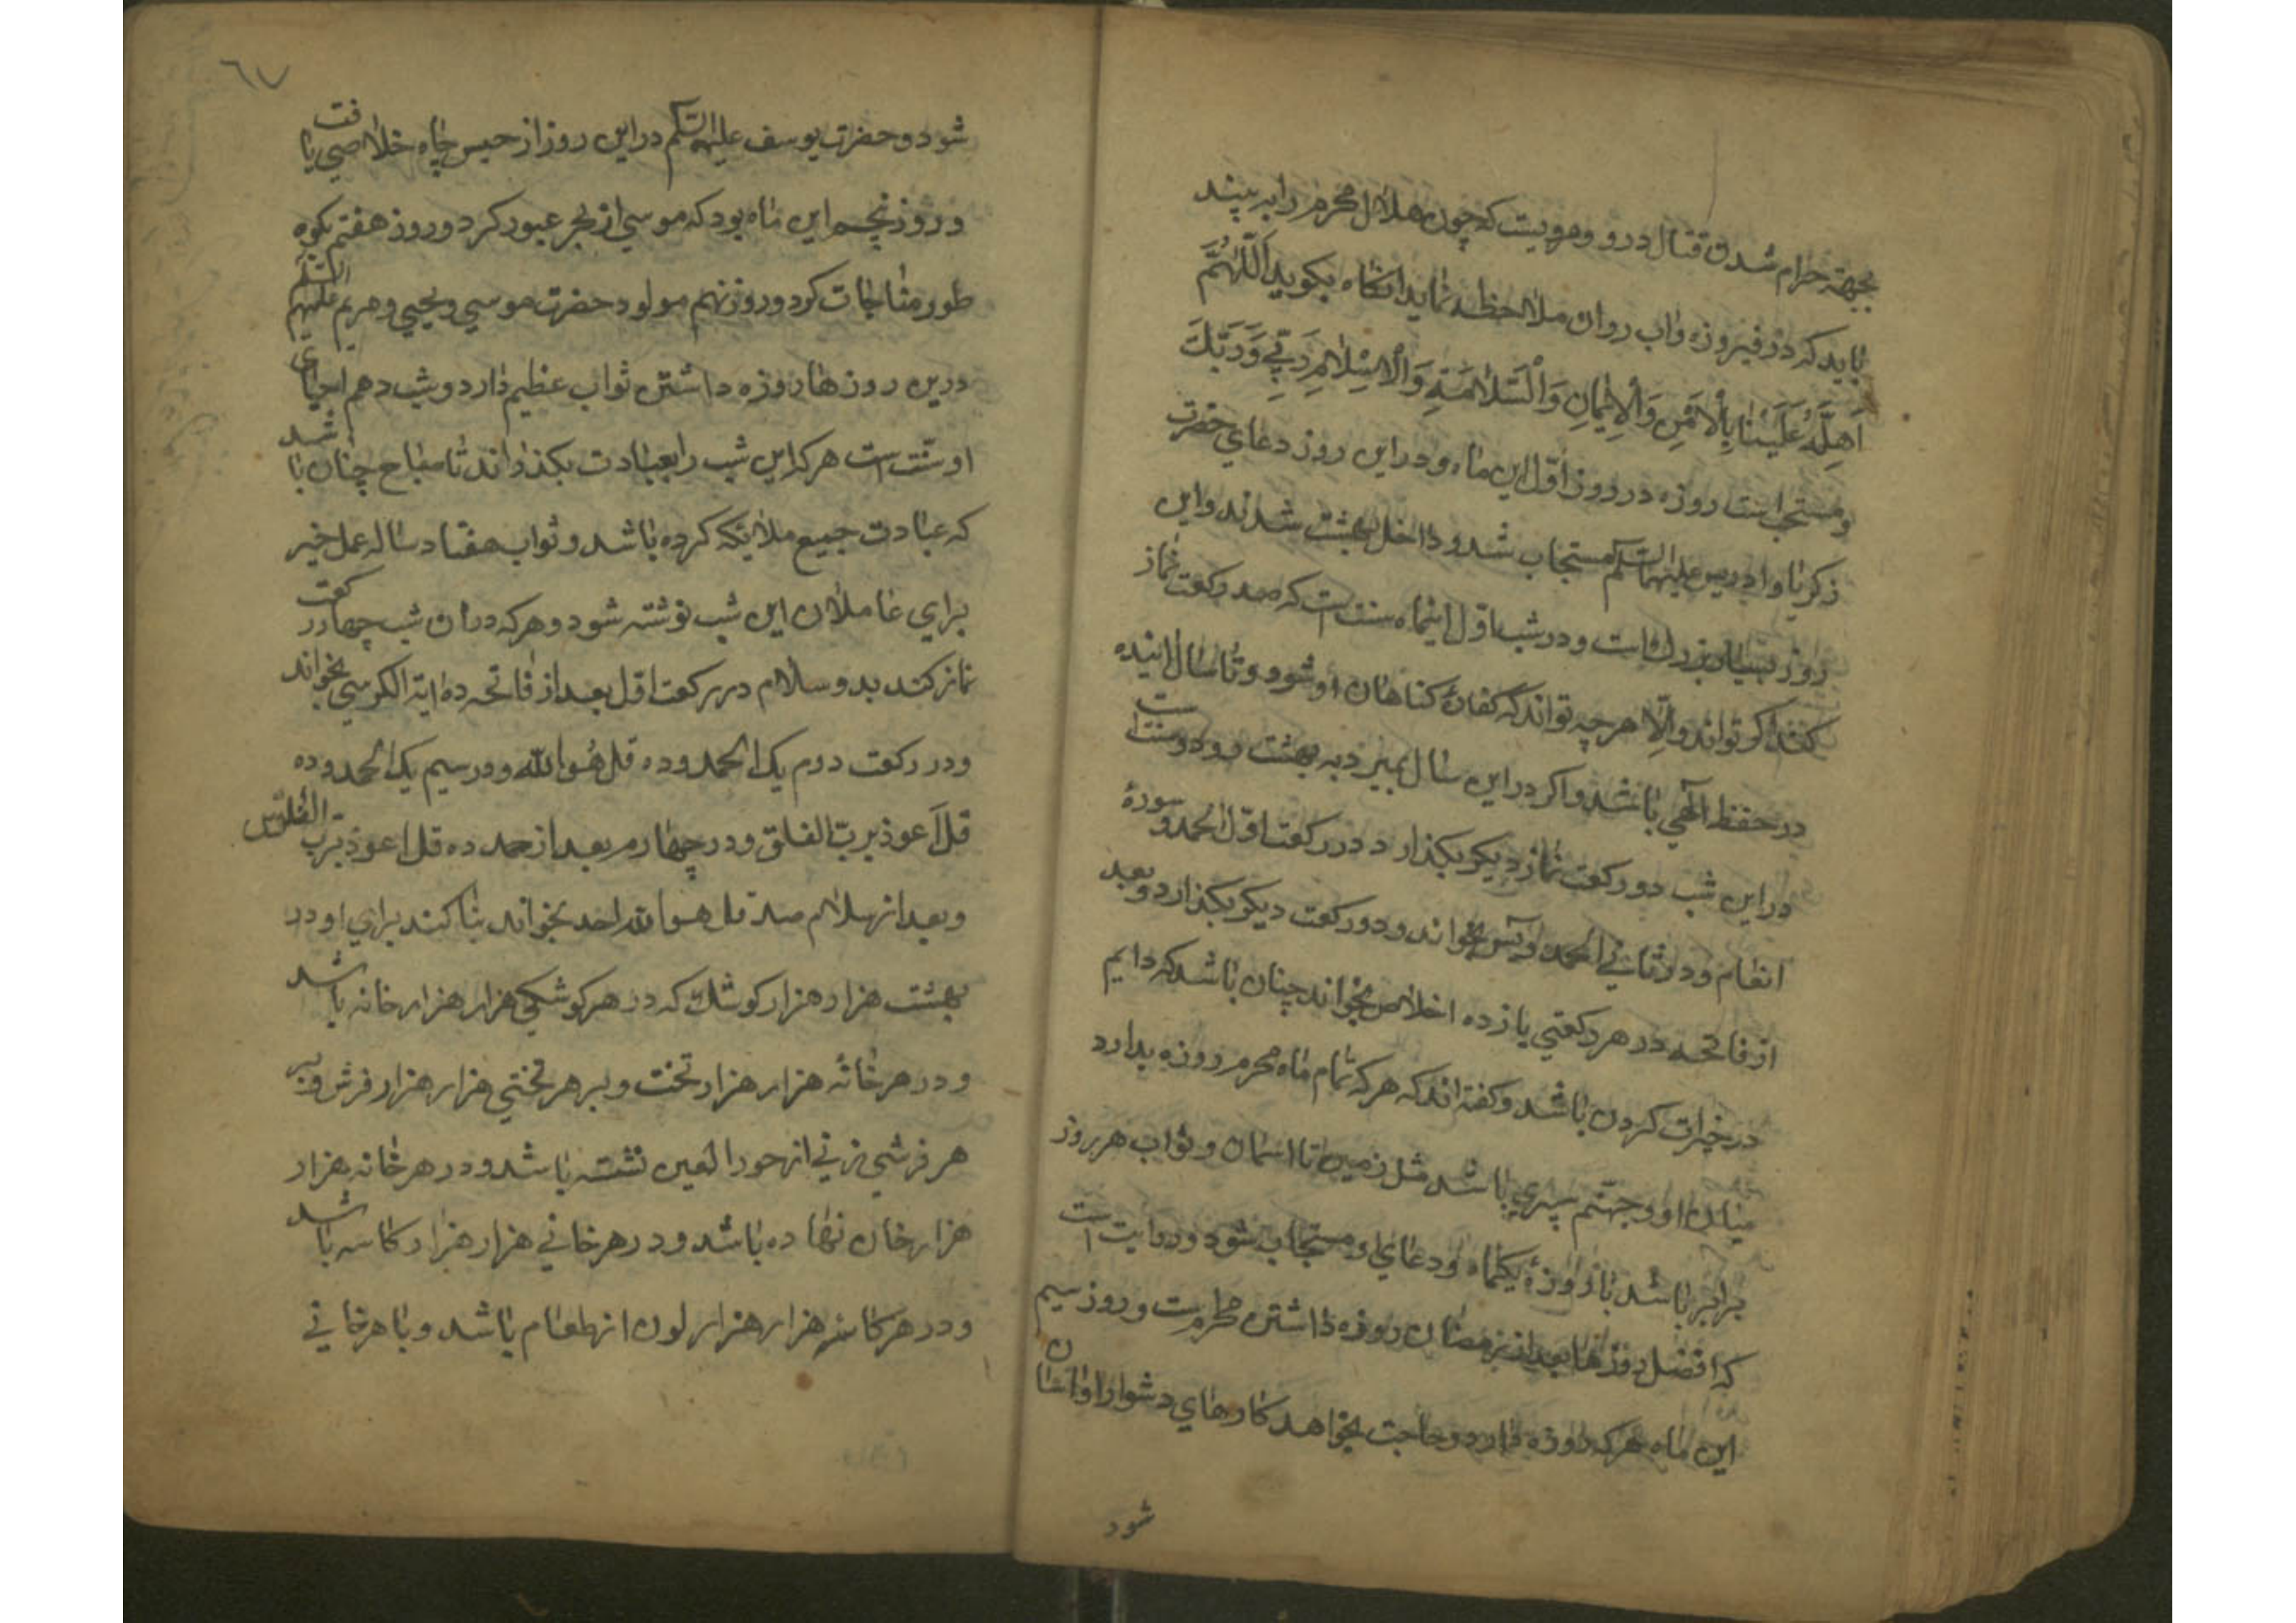 بجهة حرام شدن قتال درو و مرویت که چون هلال محرم را به بیند
باید که در فیروزه واب روان ملاحظه نماید انکاه بکوید اَللّٰهُمَّ
اَهِلَّهُ عَلَیْنَا بِالْاَمْنِ وَالْاِیمَانِ وَالْسَّلَامَةِ وَالْاِسْلَامِ رَبّی وَرَبُّكَ
و مستحب است روزه در روز اوّل این ماه و در این روز دعاي حضرت
زکریا و ادریس علیهما السّلم مستجاب شد و داخل بهشت شدند و این
روز بسیار بزرك است و در شب اوّل اینماه سنت است که صد رکعت نماز
کنند اکر تواند و الّا هرچه تواند که کفارۀ کناهان او شود و تا سال اینده
در حفظ الٓهي باشد و اکر در این سال بمیرد به بهشت رود و سنت است
در این شب دو رکعت نماز دیکر بکذارد در رکعت اوّل الحمد و سورۀ
انعام و در ثاني الحمد و یٓس بخواند و دو رکعت دیکر بکذارد و بعد
از فاتحه در هر رکعتي یازده اخلاص بخواند چنان باشد که دایم
در خیرات کردن باشد و کفته اند که هر که تمام ماه محرم روزه بدارد
میان او و جهنّم سپري باشد مثل زمین تا اسمان و ثواب هر روز
برابر باشد با روزۀ یکماه و دعاي او مستجاب شود و روایت است
که افضل روزها بعد از رمضان روزه داشتن محرم است و روز سیم
این ماه هر که روزه دارد و حاجت بخواهد کارهاي دشوار او اسان
شود
٦٧
شود و حضرت یوسف علیه السّلم در این روز از حبس چاه خلاصي یافت
و روز پنجم این ماه بود که موسي از بحر عبور کرد و روز هفتم بکوه
طور مناجات کرد و روز نهم مولود حضرت موسي و یحیي و مریم علیهم السّلم
درین روزها روزه داشتن ثواب عظیم دارد و شب دهم احیاي
او سنّت است هر که این شب را بعبادت بکذراند تا صباح چنان باشد
که عبادت جمیع ملائکه کرده باشد و ثواب هفتاد ساله عمل خیر
براي عاملان این شب نوشته شود و هر که در ان شب چهار رکعت
نماز کند بدو سلام در رکعت اوّل بعد از فاتحه ده ایة الکرسي بخواند
و در رکعت دوم یک الحمد و ده قل هُو الله و در سیم یک الحمد و ده
قل اَعوذ بربّ الفلق و در چهارم بعد از حمد ده قل اعوذ بربّ الفلق س
و بعد از سلام صد قل هو الله احد بخواند بنا کند براي او در
بهشت هزار هزار کوشك که در هر کوشکي هزار هزار خانه باشد
و در هر خانه هزار هزار تخت و بر هر تختي هزار هزار فرش و بر
هر فرشي زني از حور العین نشسته باشد و در هر خانه هزار
هزار خان نهاده باشد و در هر خاني هزار هزار کاسه باشد
و در هر کاسۀ هزار هزار لون از طعام باشد و با هر خاني